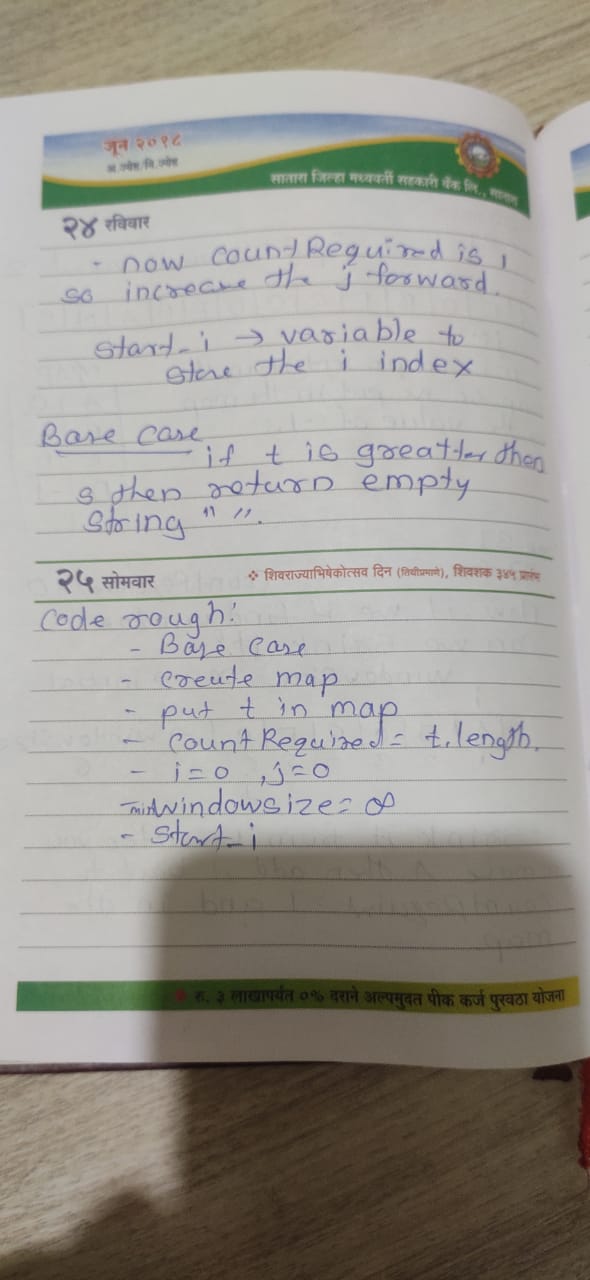 जून २०१८
अ.ज्येष्ठ/नि.ज्येष्ठ
सातारा जिल्हा मध्यवर्ती सहकारी बँक लि., सातारा
२४ रविवार
- now countRequired is 1
so increase the j forward.
start_i → variable to
store the i index
Base case
if t is greatter then
s then return empty
string " ".
२५ सोमवार
❖ शिवराज्याभिषेकोत्सव दिन (तिथीप्रमाणे), शिवशक ३४५ प्रारंभ
Code rough:
- Base case
- create map
- put t in map
- countRequired = t.length.
- i=0 , j=0
- minwindowsize = ∞
- start_i
रु. ३ लाखापर्यंत ०% दराने अल्पमुदत पीक कर्ज पुरवठा योजना